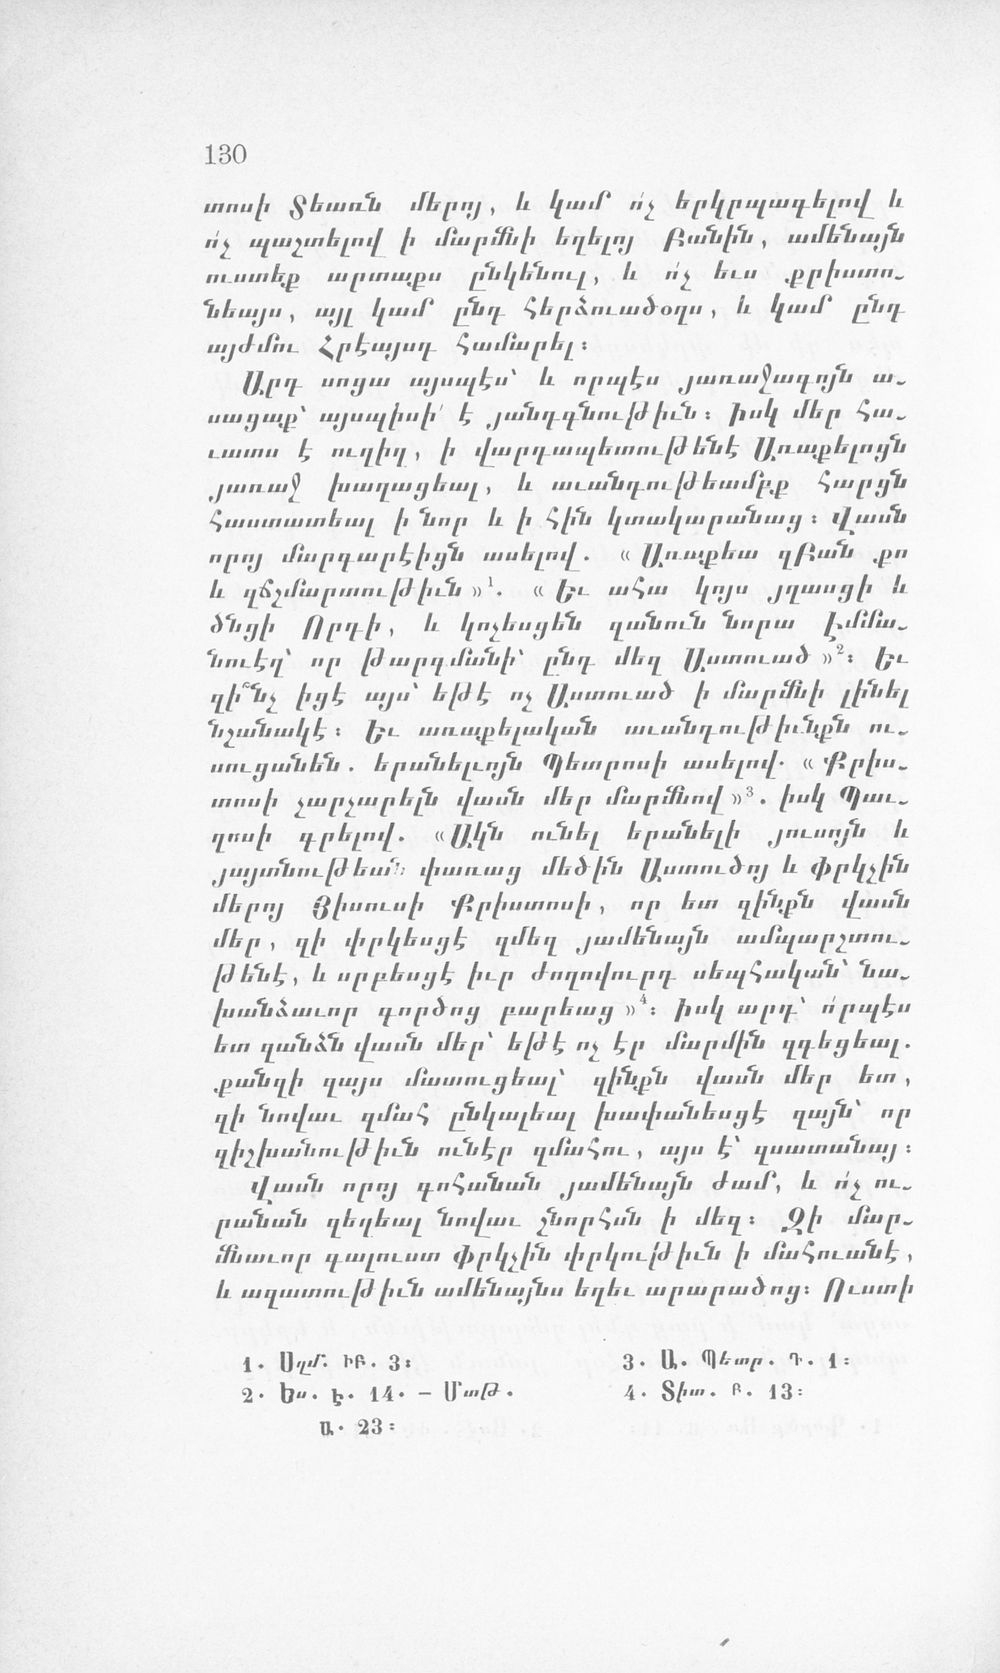 130
տոսի Տեառն մերոյ, և կամ ո՛չ երկրպագելով և
ո՛չ պաշտելով ի մարմնի եղելոյ Բանին, ամենայն
ուստեք արտաքս ընկենուլ, և ո՛չ ևս քրիստո-
նեայս, այլ կամ ընդ հերձուածօղս, և կամ ընդ
այժմու Հրէայսդ համարել։
Արդ սոցա այսպէս՝ և որպէս յառաջագոյն ա-
սացաք՝ այսպիսի՛ է յանդգնութիւն։ իսկ մեր հա-
ւատս է ուղիղ, ի վարդապետութենէ Առաքելոցն
յառաջ խաղացեալ, և աւանդութեամբք Հարցն
հաստատեալ ի նոր և ի հին կտակարանաց։ Վասն
որոյ մարդարէիցն ասելով. «Առաքեա զԲան քո
և զճշմարտութիւն»¹. «Եւ ահա կոյս յղասցի և
ծնցի Որդի, և կոչեսցեն զանուն նորա Էմմա-
նուէղ՝ որ թարգմանի՝ ընդ մեզ Աստուած»²։ Եւ
զի՞նչ իցէ այս՝ եթէ ոչ Աստուած ի մարմնի լինել
նշանակէ։ Եւ առաքելական աւանդութիւնքն ու-
սուցանեն. երանելւոյն Պետրոսի ասելով. «Քրիս-
տոսի չարչարելն վասն մեր մարմնով»³. իսկ Պաւ-
ղոսի գրելով. «Ակն ունել երանելի յուսոյն և
յայտնութեան փառաց մեծին Աստուծոյ և Փրկչին
մերոյ Յիսուսի Քրիստոսի, որ ետ զինքն վասն
մեր, զի փրկեսցէ զմեզ յամենայն ամպարշտու-
թենէ, և սրբեսցէ իւր ժողովուրդ սեպհական՝ նա-
խանձաւոր գործոց բարեաց»⁴։ իսկ արդ՝ ո՛րպէս
ետ զանձն վասն մեր՝ եթէ ոչ էր մարմին զգեցեալ.
քանզի զայս մատուցեալ՝ զինքն վասն մեր ետ,
զի նովաւ զմահ ընկալեալ խափանեսցէ զայն՝ որ
զիշխանութիւն ունէր զմահու, այս է՝ զսատանայ։
Վասն որոյ գոհանան յամենայն ժամ, և ո՛չ ու-
րանան զեղեալ նովաւ շնորհսն ի մեզ։ Զի մար-
մնաւոր գալուստ Փրկչին փրկութիւն ի մահուանէ,
և ազատութիւն ամենայնս եղեւ արարածոց։ Ուստի
1. Սղմ. ԽԲ. 3։
2. Ես. Է. 14. – Մատթ.
Ա. 23։
3. Ա. Պետր. Դ. 1։
4. Տիտ. Բ. 13։